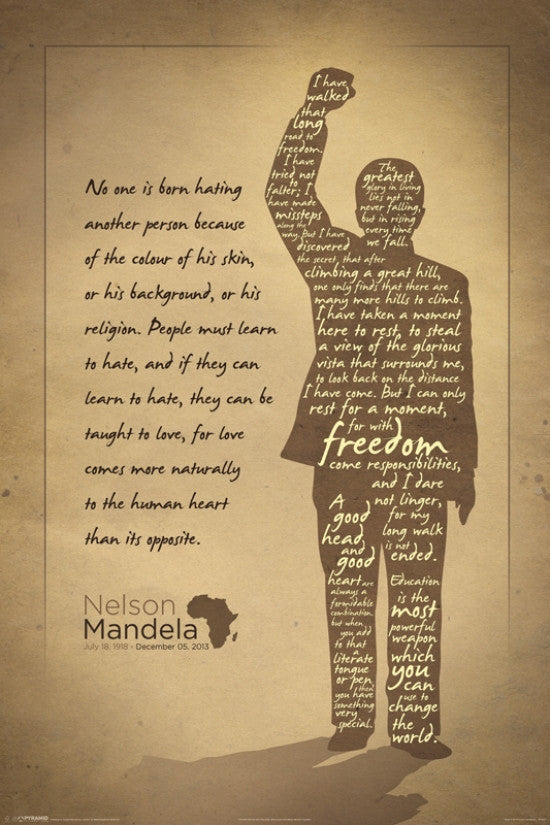 No one is born hating
another person because
of the colour of his skin,
or his background, or his
religion. People must learn
to hate, and if they can
learn to hate, they can be
taught to love, for love
comes more naturally
to the human heart
than its opposite.
Nelson
Mandela
July 18, 1918 - December 05, 2013
I have
walked
that
long
road to
freedom.
I have
tried not
to
falter; I
have made
missteps
along the
way. But I have
discovered
the secret, that after
climbing a great hill,
one only finds that there are
many more hills to climb.
I have taken a moment
here to rest, to steal
a view of the glorious
vista that surrounds me,
to look back on the distance
I have come. But I can only
rest for a moment,
for with
freedom
come responsibilities,
and I dare
not linger,
for my
long walk
is not
ended.
The
greatest
glory in living
lies not in
never falling,
but in rising
every time
we fall.
A
good
head
and
good
heart are
always a
formidable
combination.
but when
you add
to that
a
literate
tongue
or pen,
then
you have
something
very
special.
Education
is the
most
powerful
weapon
which
you
can
use to
change
the
world.
PYRAMID